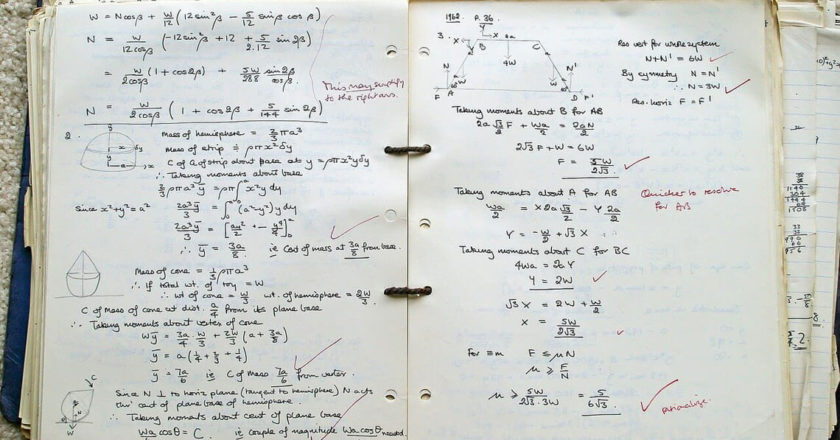 W = Ncosβ + W/12 (12sin²β − 5/12 sinβ cosβ)
N = W/12cosβ (−12sin²β + 12 + 5/2.12 sin2β)
= W/2cosβ (1 + cos2β) + 5W/288 sin2β/cosβ
This may simplify
to the right ans.
N = W/2cosβ (1 + cos2β + 5/144 sin2β)
2.
Mass of hemisphere = 2/3 ρπa³
Mass of strip = ρπx²δy
C of A of strip about base at y = ρπx²yδy
∴ Taking moments about base
2/3 ρπa³ȳ = ρπ∫x²y dy
Since x²+y²=a²
2a³ȳ/3 = ∫(a²−y²)y dy
2a³ȳ/3 = [ay²/2 − y⁴/4]
∴ ȳ = 3a/8 ie C of mass at 3a/8 from base.
Mass of cone = 1/3 ρπa³
∴ If total wt. of toy = W
∴ wt of cone = W/3 wt. of hemisphere = 2W/3
C of Mass of cone wt dist. a/4 from its plane base
∴ Taking moments about vertex of cone
Wȳ = 3a/4 . W/3 + 2W/3 (a + 3a/8)
ȳ = a(1/4 + 2/3 + 1/4)
ȳ = 7a/6 ie C of mass 7a/6 from vertex.
Since N ⊥ to horiz plane (tangent to hemisphere) N acts
thro' cent of plane base of hemisphere.
∴ Taking moments about cent of plane base
Wa cosθ = C. ie couple of magnitude Wa cosθ needed
1962. P. 36.
3.
Y
X
B
C
2a
4W
N
N'
F
A
60°
D
F'
Res vert for whole system
N+N' = 6W
By symmetry N = N'
∴ N = 3W
Res. horiz F = F'
Taking moments about B for AB
2a√3/2 F + Wa/2 = 2aN/2
2√3F + W = 6W
F = 5W/2√3
Taking moments about A for AB
Quicker to resolve
for AB
Wa/2 = X 2a√3/2 − Y 2a/2
Y = −W/2 + √3 X
Taking moments about C for BC
4Wa = 2aY
Y = 2W
√3X = 2W + W/2
X = 5W/2√3
For ≡m F ≤ μN
μ ≥ F/N
μ ≥ 5W/2√3.3W = 5/6√3
rationalize.